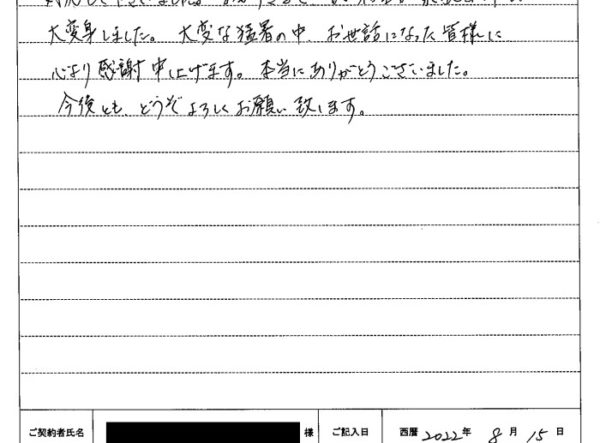 大変身しました。大変な猛暑の中、お世話になった皆様に
心より感謝申し上げます。本当にありがとうございました。
今後とも、どうぞよろしくお願い致します。
ご契約者氏名 様 ご記入日 西暦 2022年 8月 15日